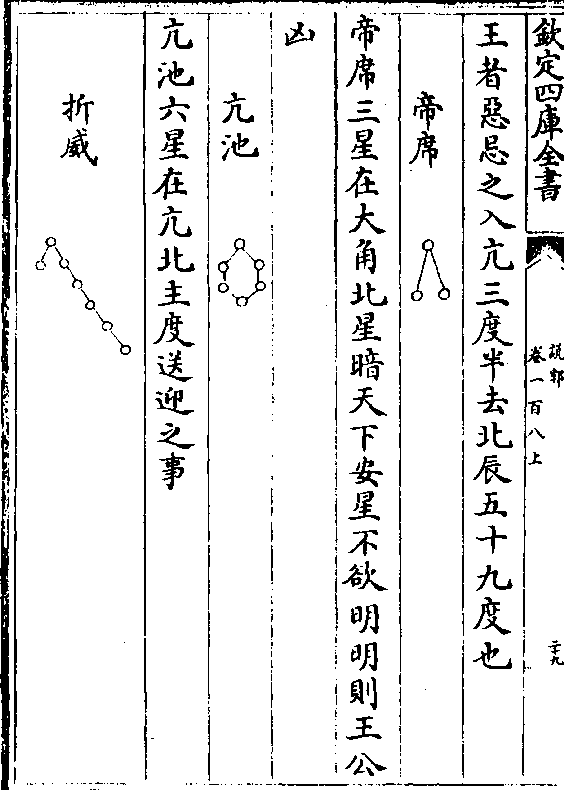 欽定四庫全書
說郛
卷一百八上
二十九
王者惡忌之入亢三度半去北辰五十九度也
帝席
帝席三星在大角北星暗天下安星不欲明明則王公
凶
亢池
亢池六星在亢北主度送迎之事
折威